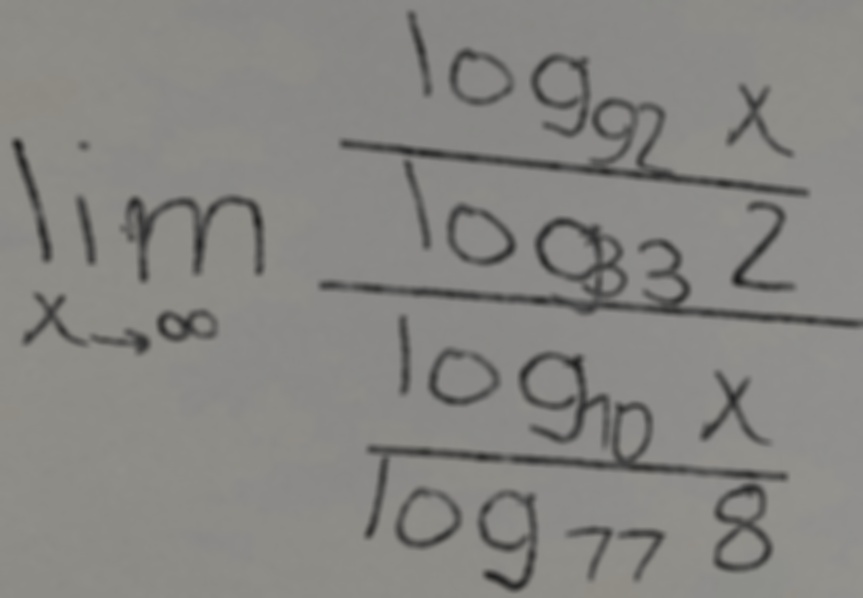 lim x→∞
log₉₂ x
log₃₃ 2
log₁₀ x
log₇₇ 8